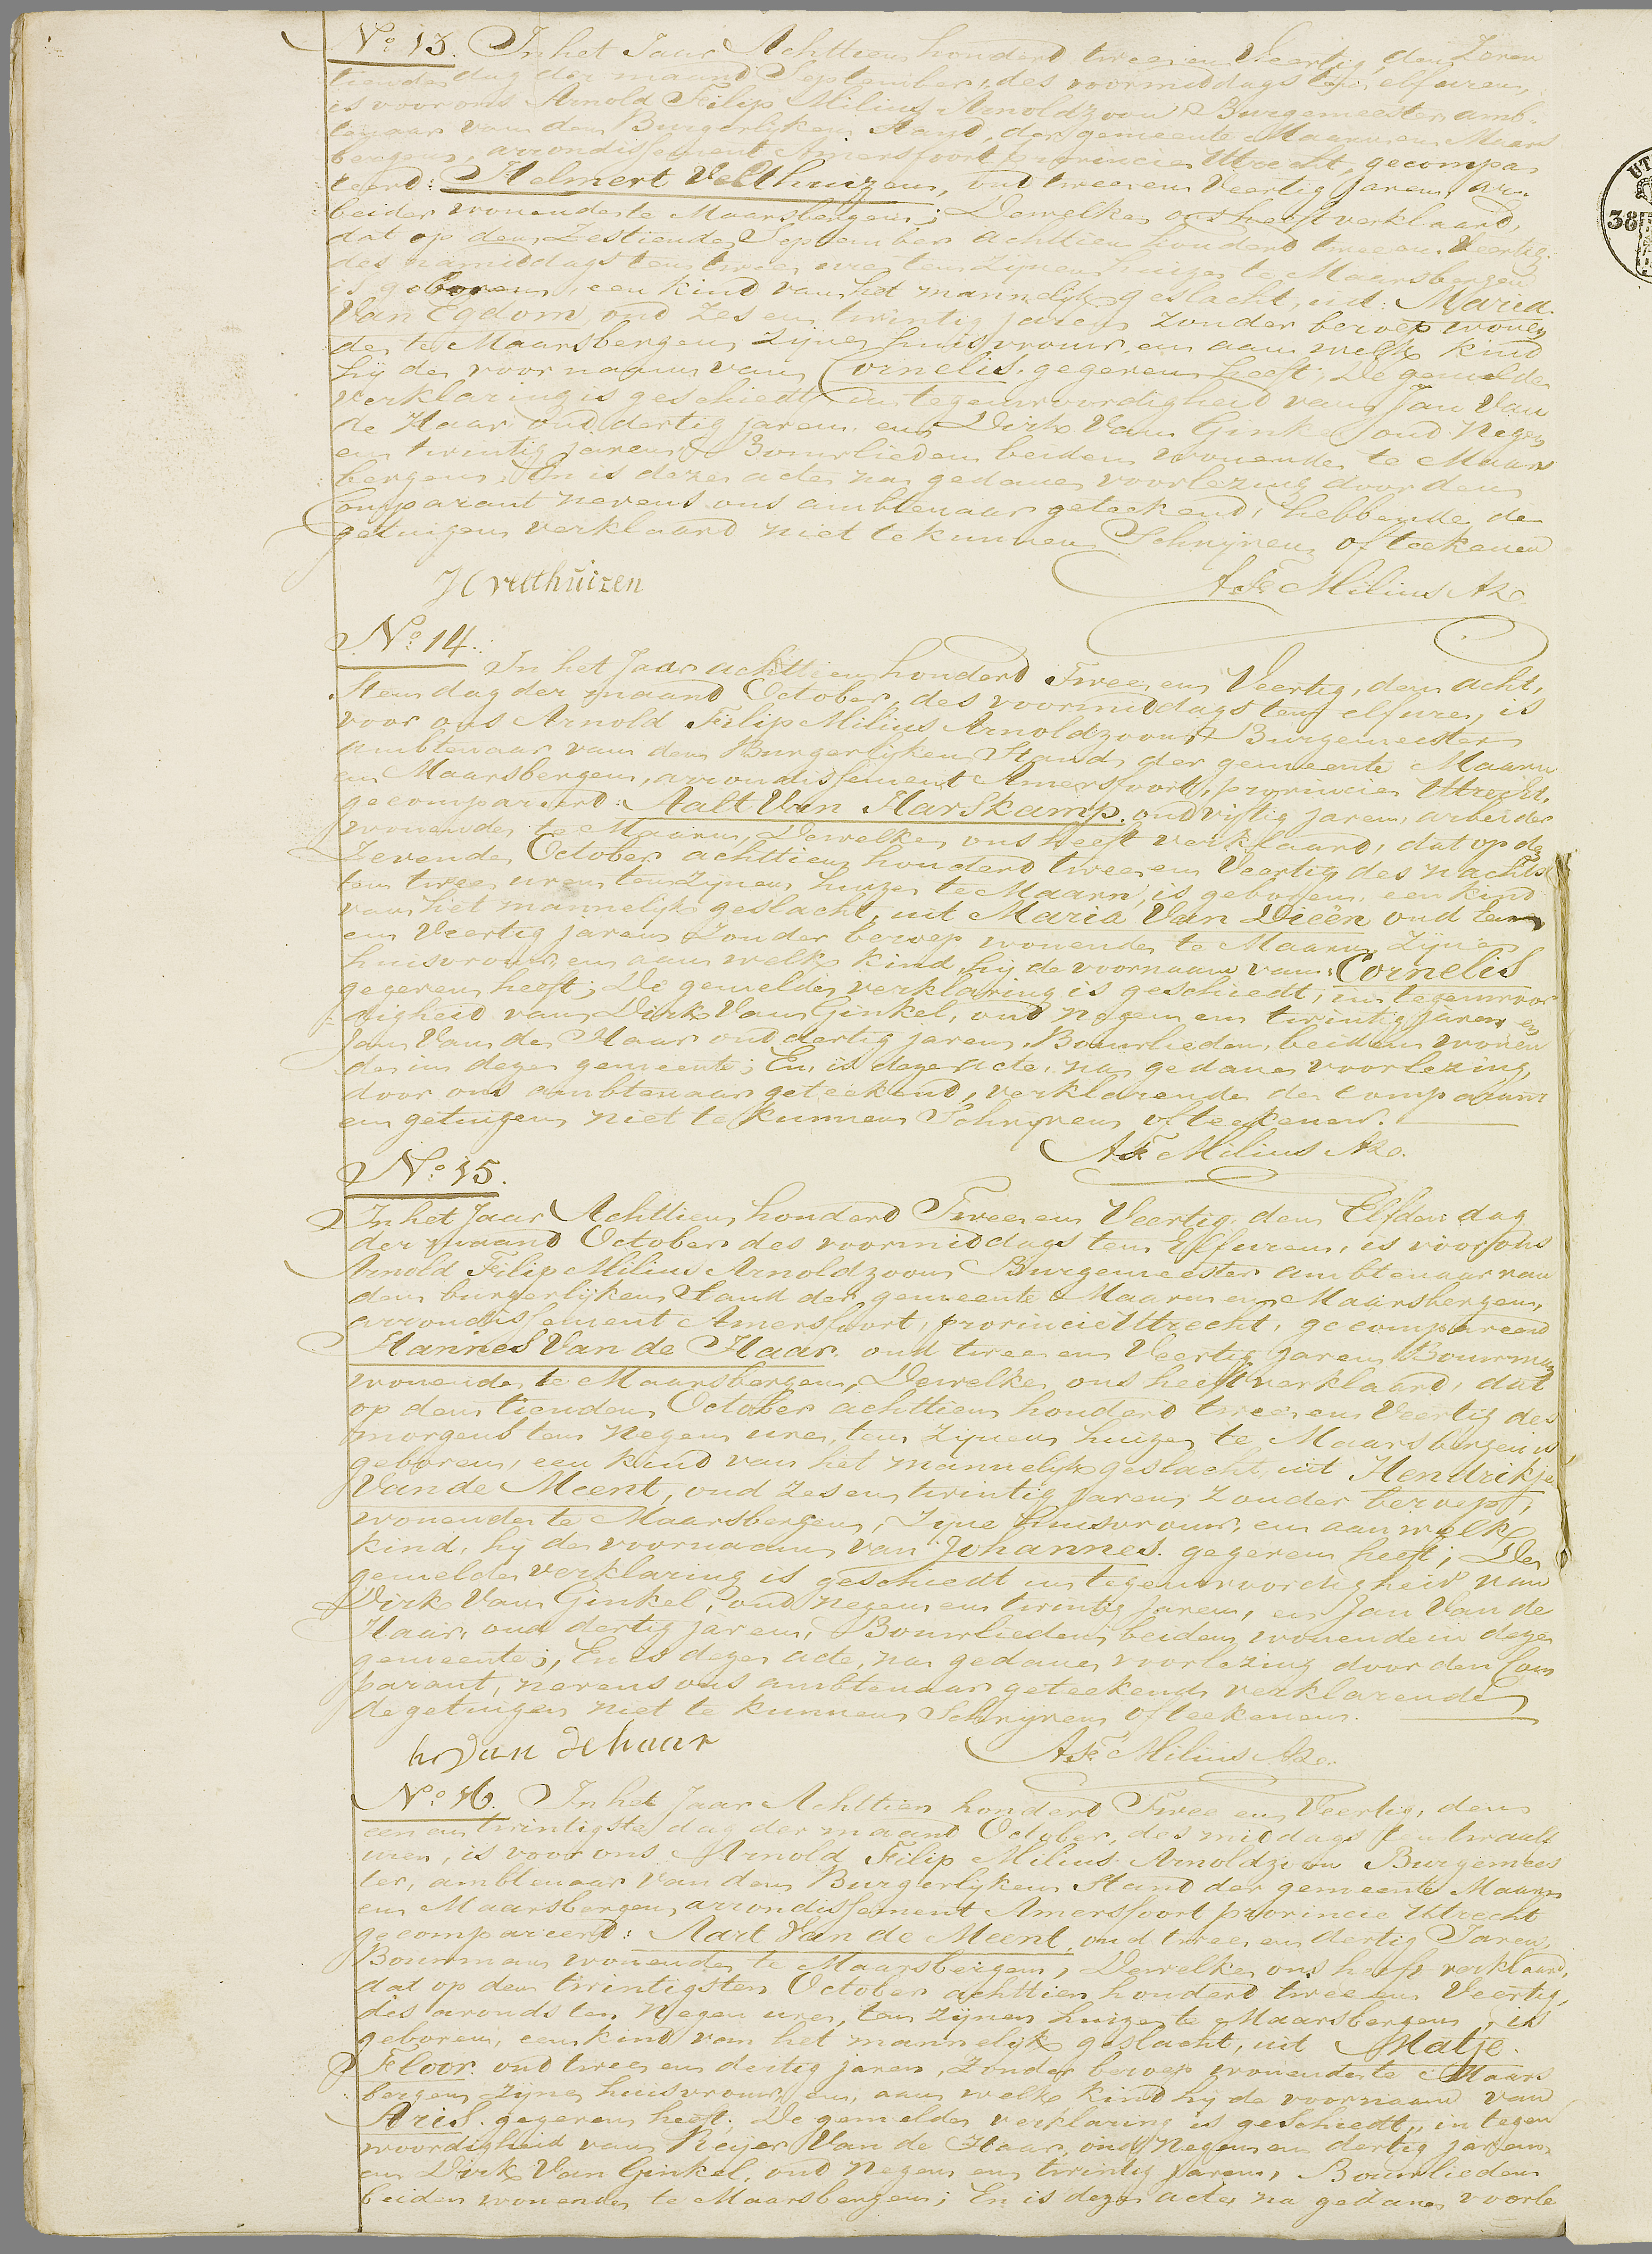 No 13. In het Jaar Achttien honderd twee en Veertig, den Zeven
tiende dag der maand September, des voormiddags ten elf uren,
is voor ons Arnold Filip Milius Arnoldzoon Burgemeester amb-
tenaar van den Burgerlijken Stand, der gemeente Maarn en Maars
bergen, arrondissement Amersfoort provincie Utrecht, gecompa
reerd: Helmert Velthuizen, oud twee en Veertig jaren, ar-
beider wonende te Maarsbergen; Dewelke ons heeft verklaard,
dat op den Zestiende September achttien honderd twee en Veertig.
des namiddags ten twee ure ten zijnen huize te Maarsbergen
is geboren, een kind van het mannelijk geslacht, uit: Maria
Van Egdom, oud Zes en twintig jaren zonder beroep wonen
de te Maarsbergen zijne huisvrouw, en aan welk kind
hij de voornaam van Cornelis gegeven heeft; De gemelde
verklaring is geschiedt in tegenwoordigheid van Jan Van
de Haar oud dertig jaren en Dirk Van Ginkel oud Negen
en twintig jaren Bouwlieden beiden wonende te Maars
bergen. En is deze acte na gedane voorlezing door den
Comparant nevens ons ambtenaar geteekend, hebbende de
getuigen verklaard niet te kunnen Schrijven of teekenen
H velthuizen A F Milius Az
No 14.
In het Jaar achttien honderd Twee en Veertig, den acht,
sten dag der maand October, des voormiddags ten elf ure, is
voor ons Arnold Filip Milius Arnoldzoon Burgemeester
ambtenaar van den Burgerlijken Stand, der gemeente Maarn
en Maarsbergen, arrondissement Amersfoort, provincie Utrecht.
gecompareerd: Aalt Van Harskamp, oud vijftig jaren, arbeider
wonende te Maarn, Dewelke ons heeft verklaard, dat op de
Zevende October achttien honderd twee en Veertig des nachts
ten twee uren ten zijnen huize te Maarn, is geboren een kind
van het mannelijk geslacht, uit Maria Van Dieën oud
en Veertig jaren Zonder beroep wonende te Maarn zijne
huisvrouw, en aan welk kind hij de voornaam van Cornelis
gegeven heeft; De gemelde verklaring is geschiedt, in tegenwoor
digheid van Dirk Van Ginkel, oud negen en twintig jaren en
Jan Van de Haar oud dertig jaren, Bouwlieden, beiden wonen
de in deze gemeente; En is deze acte, na gedane voorlezing,
door ons ambtenaar geteekend, verklarende de Comparant
en getuigen niet te kunnen Schrijven of teekenen.
A F Milius Az.
No 15.
In het Jaar Achttien honderd Twee en Veertig, den Elfden dag
der maand October des voormiddags ten Elf uren, is voor ons
Arnold Filip Milius Arnoldzoon Burgemeester ambtenaar van
den burgerlijken Stand der gemeente Maarn en Maarsbergen,
arrondissement Amersfoort, provincie Utrecht, gecompareerd
Hannes Van de Haar. oud twee en Veertig jaren Bouwman
wonende te Maarsbergen, Dewelke ons heeft verklaard, dat
op den tienden October achttien honderd twee en Veertig des
morgens ten Negen ure, ten zijnen huize te Maarsbergen is
geboren, een kind van het mannelijk geslacht, uit Hendrikje
Van de Meent, oud Zes en twintig jaren Zonder beroep,
wonende te Maarsbergen, Zijne huisvrouw, en aan welk
kind, hij de voornaam van Johannes. gegeven heeft; De
gemelde verklaring is geschiedt in tegenwoordigheid van
Dirk Van Ginkel, oud Negen en twintig jaren, en Jan Van de
Haar, oud dertig jaren, Bouwlieden beiden wonende in deze
gemeente; En is deze acte, na gedane voorlezing door den Com
parant, nevens ons ambtenaar geteekend, verklarende
de getuigen niet te kunnen Schrijven of teekenen.
h van de haar A F Milius Az.
No 16. In het Jaar Achttien honderd Twee en Veertig, den
een en twintigste dag der maand October, des middags ten twaalf
uren, is voor ons Arnold Filip Milius Arnoldzoon Burgemees
ter, ambtenaar van den Burgerlijken Stand der gemeente Maarn
en Maarsbergen, arrondissement Amersfoort provincie Utrecht
gecompareerd: Aart Van de Meent, oud twee en dertig Jaren,
Bouwman wonende te Maarsbergen, Dewelke ons heeft verklaard,
dat op den twintigsten October achttien honderd twee en Veertig,
des avonds ten Negen ure, ten zijnen huize te Maarsbergen, is
geboren, een kind van het mannelijk geslacht, uit Matje
Floor. oud twee en dertig jaren, Zonder beroep wonende te Maars
bergen zijne huisvrouw, en, aan welk kind hij de voornaam van
Aries. gegeven heeft; De gemelde verklaring is geschiedt, in tegen
woordigheid van Reijer Van de Haar, oud Negen en dertig jaren
en Dirk Van Ginkel, oud Negen en twintig jaren, Bouwlieden
beiden wonende te Maarsbergen; En is deze acte na gedane voorle
38